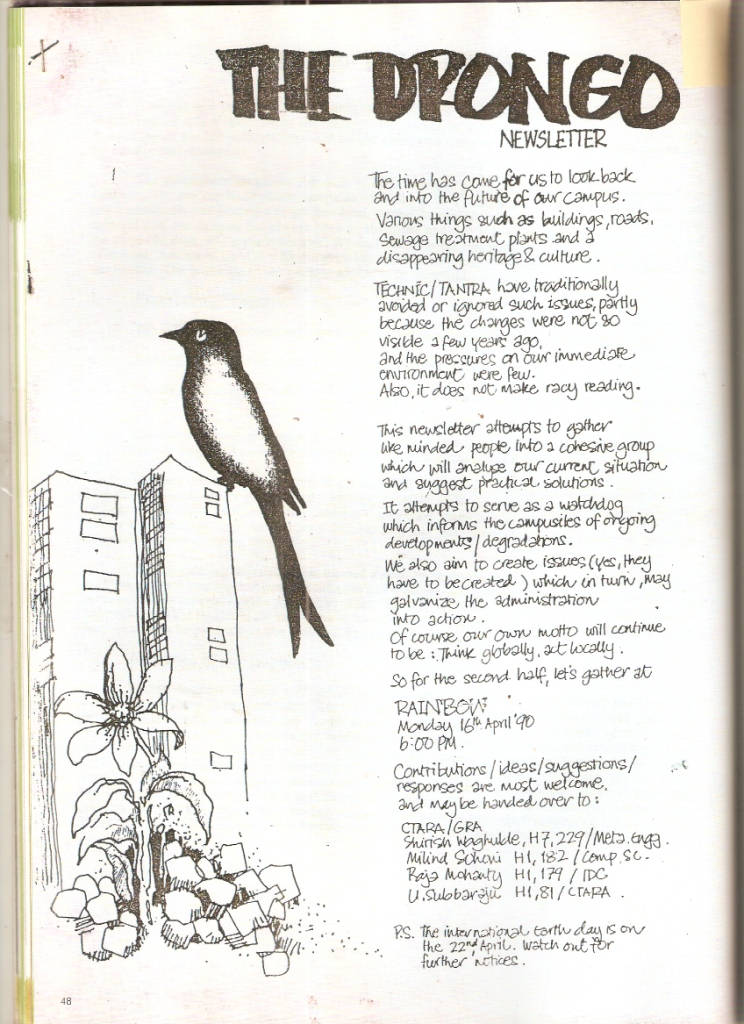 THE DRONGO
NEWSLETTER
The time has come for us to look back
and into the future of our campus.
Various things such as buildings, roads,
sewage treatment plants and a
disappearing heritage & culture.
TECHNIC/TANTRA have traditionally
avoided or ignored such issues, partly
because the changes were not so
visible a few years ago,
and the pressures on our immediate
environment were few.
Also, it does not make racy reading.
This newsletter attempts to gather
like minded people into a cohesive group
which will analyse our current situation
and suggest practical solutions.
It attempts to serve as a watchdog
which informs the campusites of ongoing
developments/degradations.
We also aim to create issues (yes, they
have to be created) which in turn, may
galvanize the administration
into action.
Of course our own motto will continue
to be: Think globally, act locally.
So for the second half, let's gather at
RAINBOW
Monday 16th April '90
6:00 PM.
Contributions/ideas/suggestions/
responses are most welcome,
and may be handed over to:
CTARA/GRA
Shirish Waghulde, H7, 229/Meta. Engg.
Milind Sohoni H1, 182/Comp. Sc.
Raja Mohanty H1, 179/IDC
U. Subbaraju H1, 81/CTARA.
P.S. The international Earth day is on
the 22nd April. Watch out for
further notices.
48